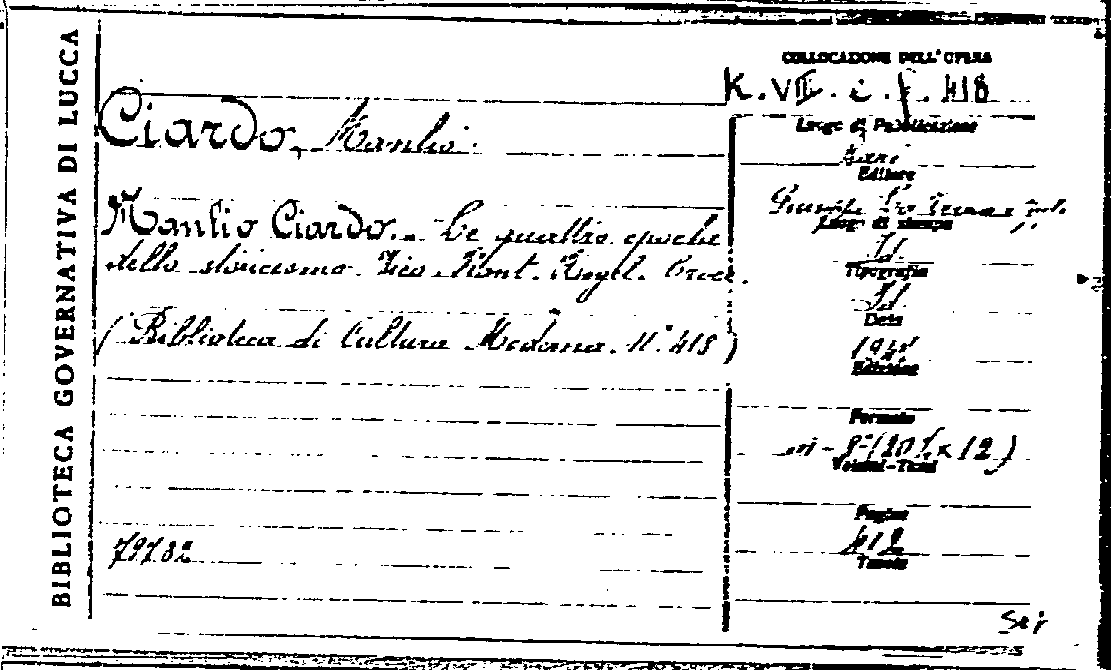 BIBLIOTECA GOVERNATIVA DI LUCCA
Ciardo, Manlio.
Manlio Ciardo. - Le quattro epoche
dello storicismo. Vico. Kant. Hegel. Croce.
(Biblioteca di Cultura Moderna. N.° 418)
79782
COLLOCAZIONE DELL'OPERA
K. VII. i. f. 418
Luogo di Pubblicazione
Bari
Editore
Giuseppe
Luogo di stampa
Id.
Tipografia
Id.
Data
Edizione
Formato
in - 8° (20 ½ x 12)
Volumi-Tomi
Pagine
412
Tavole